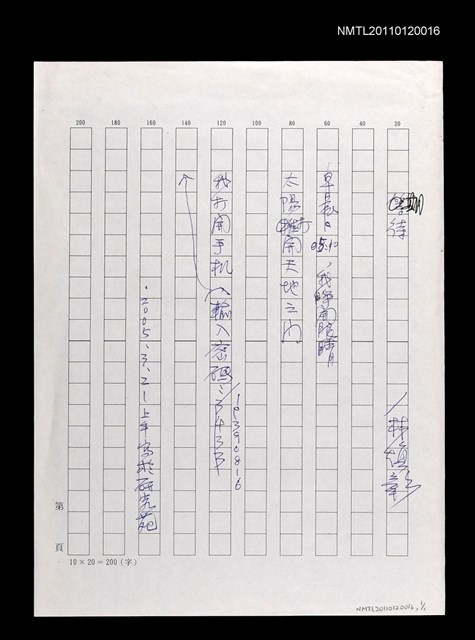 NMTL20110120016
200 180 160 140 120 100 80 60 40 20
期待
／林煥彰
早晨，05:10，我睜開眼睛
太陽打開天地之門
我打開手机
輸入密碼：3433
／19390816
．2005．3．21上午寫於研究苑
第 頁
10×20＝200（字）
NMTL20110120016, 1/1